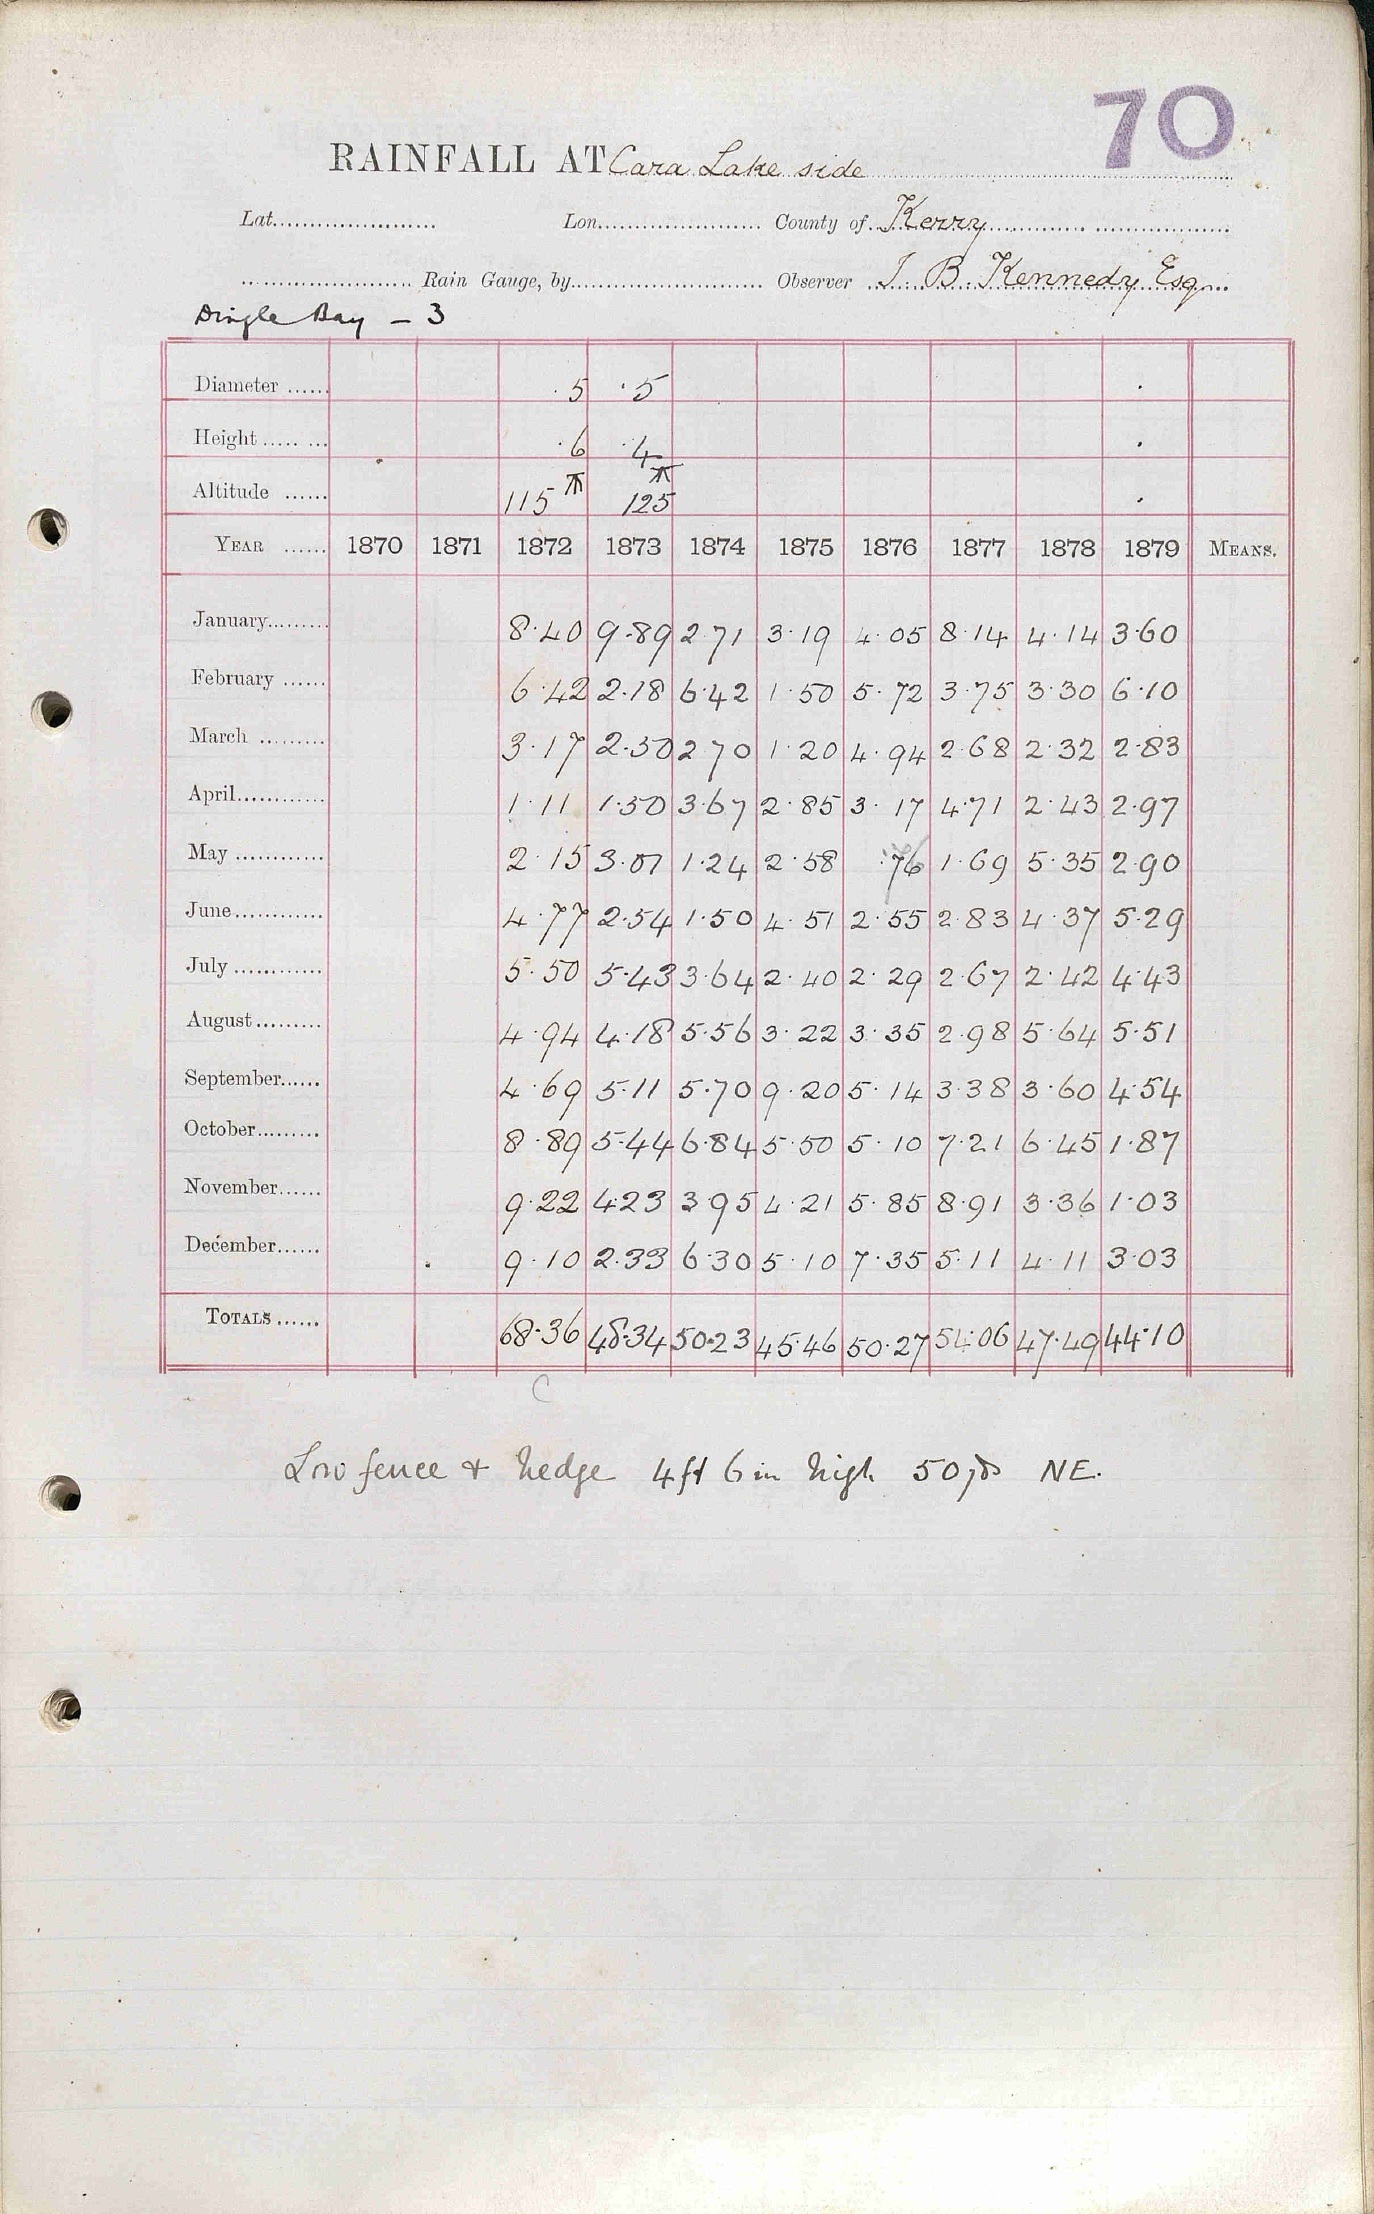 70
RAINFALL AT Cara Lake side
Lat. Lon. County of Kerry
Rain Gauge, by Observer J. B. Kennedy Esq
Dingle Bay - 3
Diameter ...... ·5 ·5 ·
Height ........ ·6 ·4 ·
Altitude ...... 115 125 ·
YEAR ...... 1870 1871 1872 1873 1874 1875 1876 1877 1878 1879 MEANS.
January......... 8·40 9·89 2·71 3·19 4·05 8·14 4·14 3·60
February ...... 6·42 2·18 6·42 1·50 5·72 3·75 3·30 6·10
March ......... 3·17 2·50 2·70 1·20 4·94 2·68 2·32 2·83
April............ 1·11 1·50 3·67 2·85 3·17 4·71 2·43 2·97
May ............ 2·15 3·01 1·24 2·58 ·76 1·69 5·35 2·90
June............ 4·77 2·54 1·50 4·51 2·55 2·83 4·37 5·29
July ............ 5·50 5·43 3·64 2·40 2·29 2·67 2·42 4·43
August......... 4·94 4·18 5·56 3·22 3·35 2·98 5·64 5·51
September...... 4·69 5·11 5·70 9·20 5·14 3·38 3·60 4·54
October......... 8·89 5·44 6·84 5·50 5·10 7·21 6·45 1·87
November...... 9·22 4·23 3·95 4·21 5·85 8·91 3·36 1·03
December...... 9·10 2·33 6·30 5·10 7·35 5·11 4·11 3·03
TOTALS ...... 68·36 48·34 50·23 45·46 50·27 54·06 47·49 44·10
C
Low fence & hedge 4 ft 6 in high 50 yds NE.